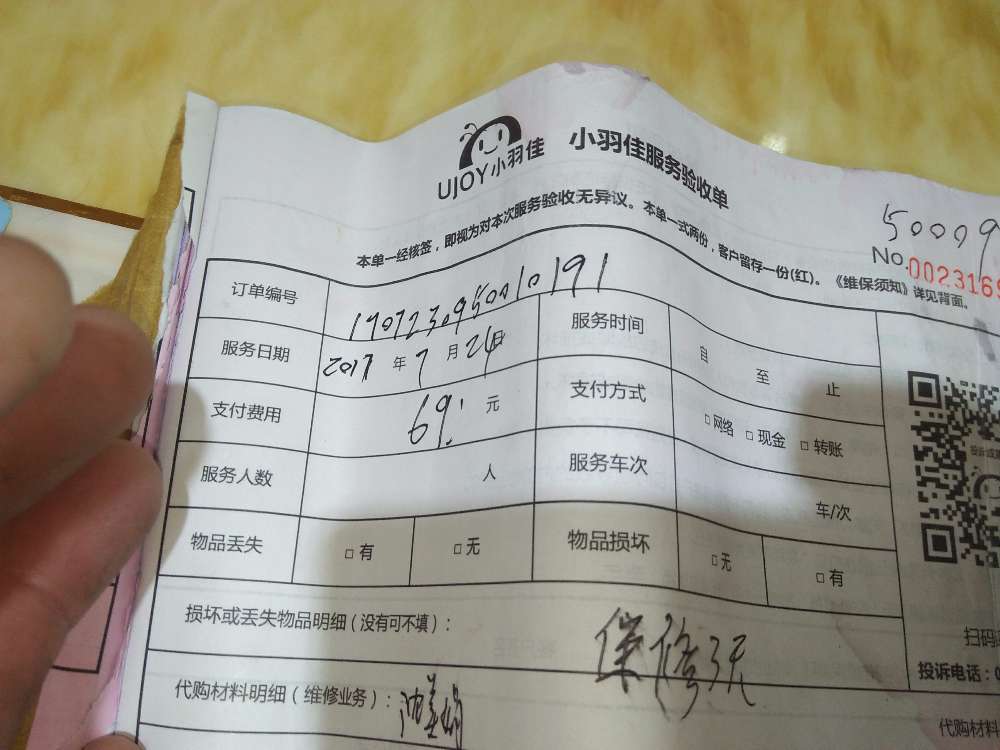 UJOY小羽佳 小羽佳服务验收单
50009
No.0023169
本单一经核签，即视为对本次服务验收无异议。本单一式两份，客户留存一份(红)。《维保须知》详见背面。
订单编号 1707230950010191
服务日期 2017年7月24日 服务时间 自 至 止
支付费用 69.元 支付方式 □网络 □现金 □转账
服务人数 人 服务车次 车/次
物品丢失 □有 □无 物品损坏 □无 □有
损坏或丢失物品明细(没有可不填)：
保修3天
扫码
投诉电话：
代购材料明细(维修业务)：
代购材料